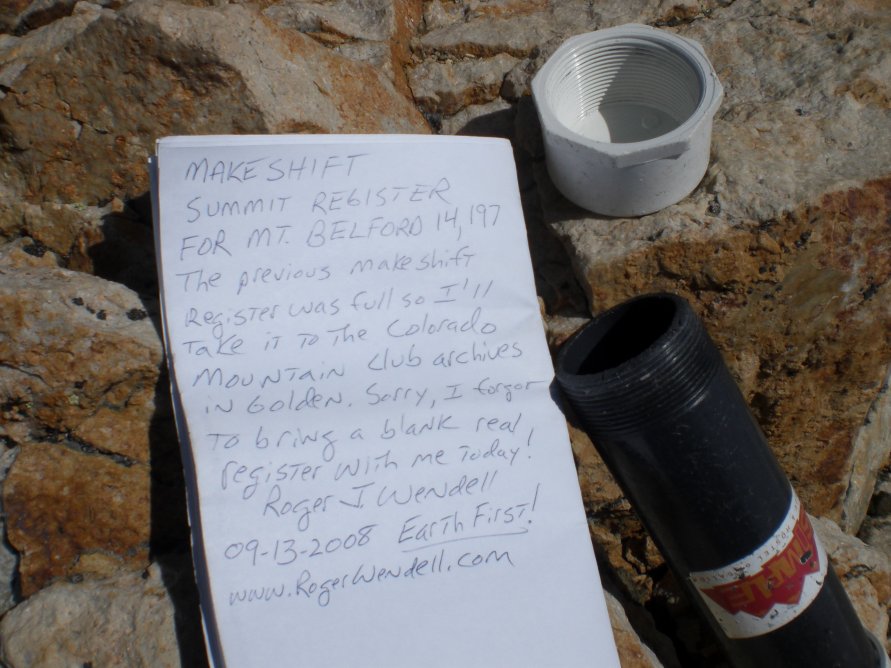 MAKESHIFT
SUMMIT REGISTER
FOR MT. BELFORD 14,197
The previous makeshift
Register was full so I'll
Take it to the Colorado
Mountain Club archives
in Golden. Sorry, I forgot
To bring a blank real
register with me today!
Roger J. Wendell
09-13-2008 Earth First!
www.RogerWendell.com